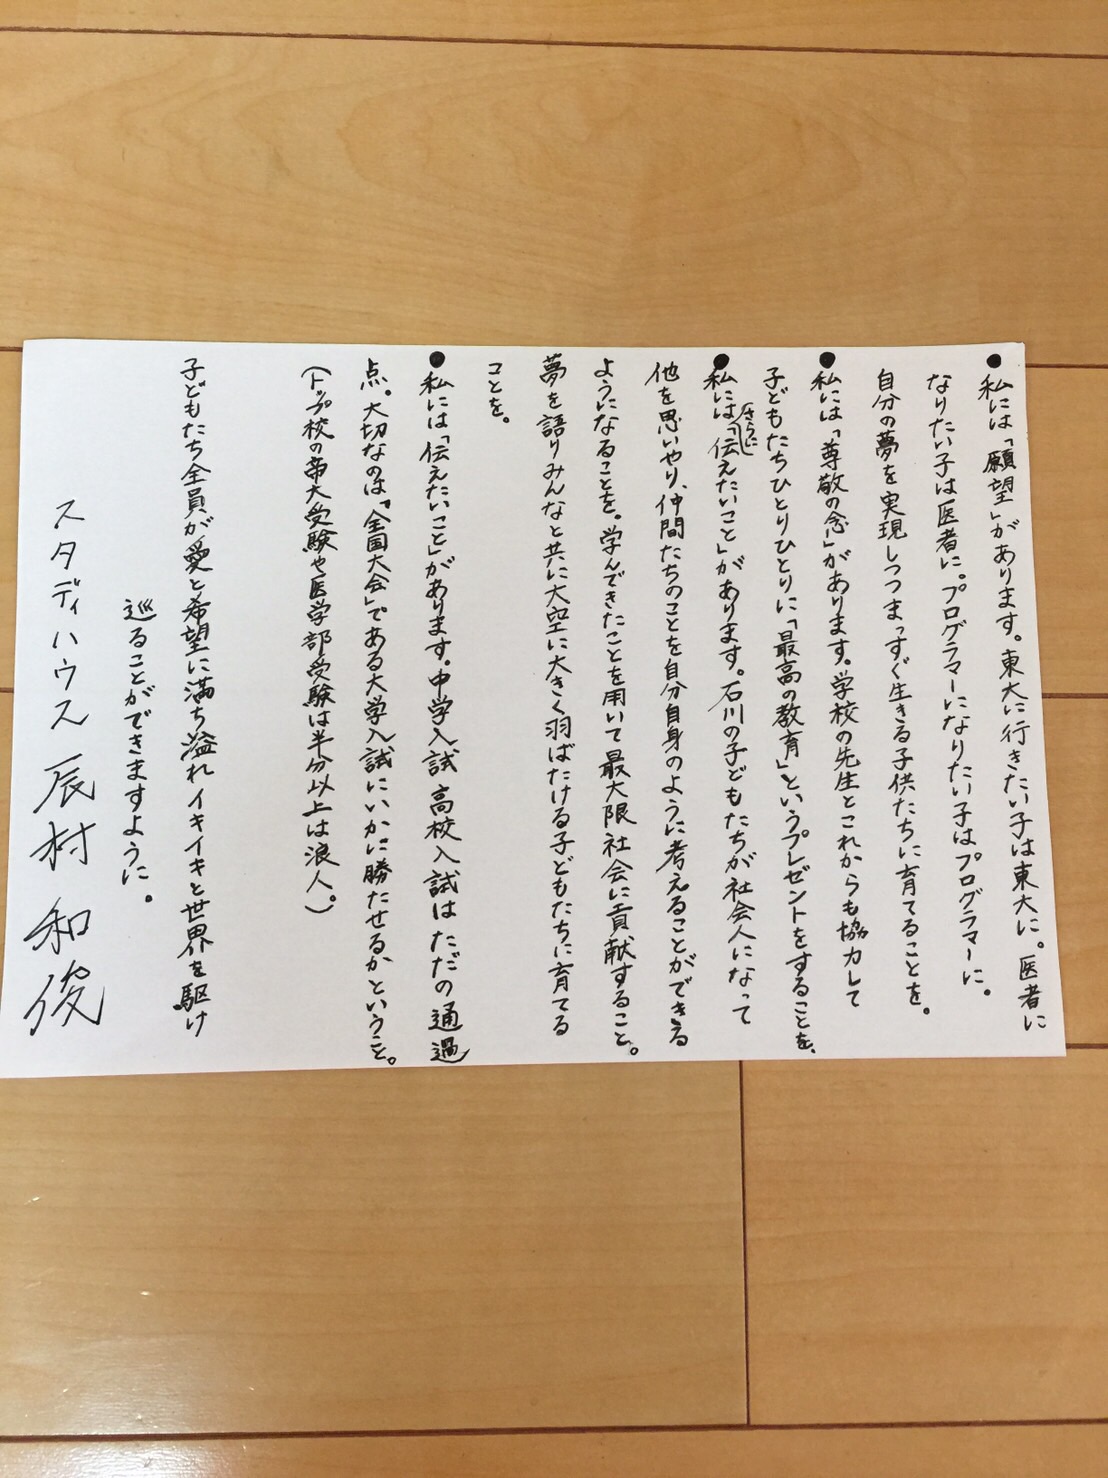 ●私には「願望」があります。東大に行きたい子は東大に。医者に
なりたい子は医者に。プログラマーになりたい子はプログラマーに。
自分の夢を実現しつつまっすぐ生きる子供たちに育てることを。
●私には「尊敬の念」があります。学校の先生とこれからも協力して
子どもたちひとりひとりに「最高の教育」というプレゼントをすることを。
●私にはさらに「伝えたいこと」があります。石川の子どもたちが社会人になって
他を思いやり、仲間たちのことを自分自身のように考えることができる
ようになることを。学んできたことを用いて最大限社会に貢献すること。
夢を語りみんなと共に大空に大きく羽ばたける子どもたちに育てる
ことを。
●私には「伝えたいこと」があります。中学入試高校入試はただの通過
点。大切なのは「全国大会」である大学入試にいかに勝たせるかということ。
（トップ校の帝大受験や医学部受験は半分以上は浪人。）
子どもたち全員が愛と希望に満ち溢れイキイキと世界を駆け
巡ることができますように。
スタディハウス 辰村 和俊